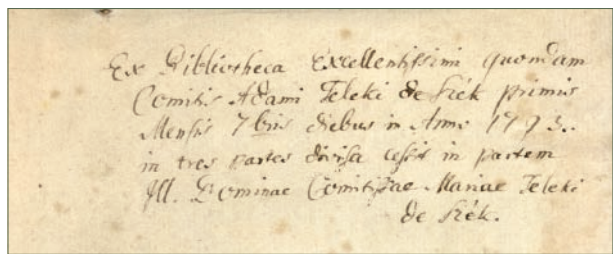 Ex Bibliotheca Excellentissimi quondam
Comitis Adami Teleki de Szék primis
Mensis 7bris diebus in Anno 1793.
in tres partes divisa cessit in partem
Ill. Dominae Comitissae Mariae Teleki
de Szék.